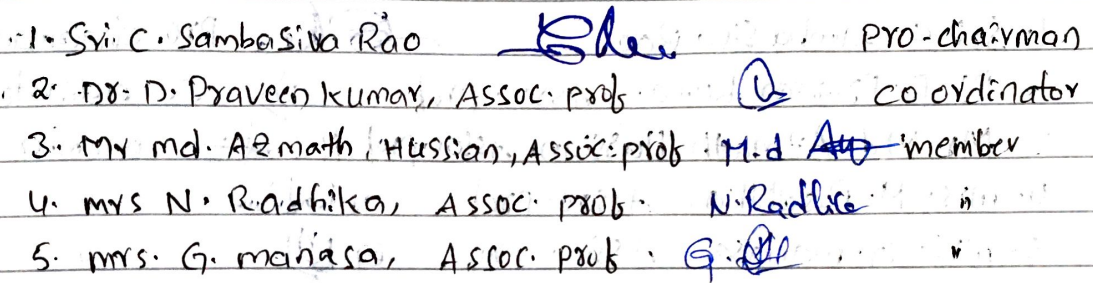 1. Sri. C. Sambasiva Rao pro-chairman
2. Dr. D. Praveen kumar, Assoc. prof. coordinator
3. Mr md. Azmath Hussian, Assoc. prof M.d member
4. mrs N. Radhika, Assoc. prof. N. Radhika "
5. mrs. G. manasa, Assoc. prof. G. "